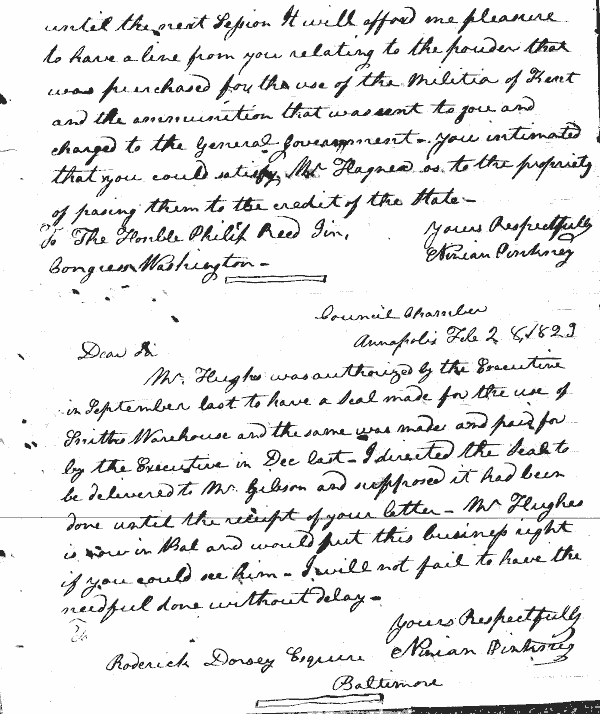 until the next Session It will afford me pleasure
to have a line from you relating to the powder that
was purchased for the use of the Militia of Kent
and the ammunition that was sent to you and
charged to the General Government - you intimated
that you could satisfy Mr Hagner as to the propriety
of passing them to the credit of the State -
To The Honble Philip Reed in,
yours Respectfully
Congress Washington -
Ninian Pinkney
Council Chamber
Annapolis Feb 28, 1823
Dear Sir
Mr. Hughes was authorized by the Executive
in September last to have a Seal made for the use of
Smiths Warehouse and the same was made and paid for
by the Executive in Dec last - I directed the Seal to
be delivered to Mr. Gibson and supposed it had been
done until the receipt of your letter - Mr Hughes
is now in Bal and would put this business right
if you could see him - I will not fail to have the
needful done without delay -
yours Respectfully
To
Roderick Dorsey Esquire
Ninian Pinkney
Baltimore